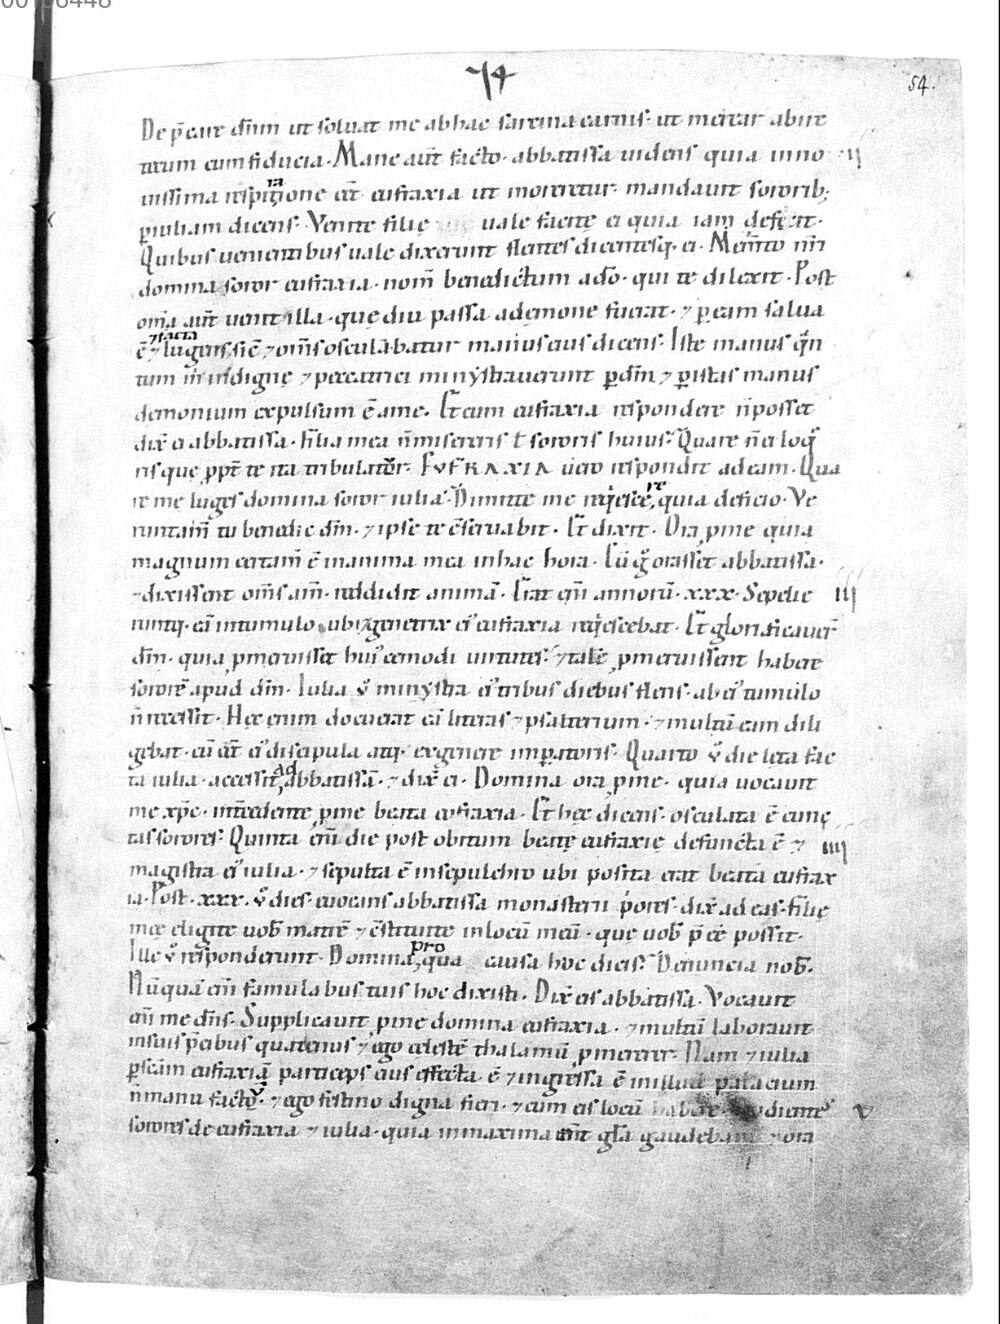 74
54.
De p̄care dn̄m ut soluat me ab hac sarcina carnis· ut merear abire
uirum cum fiducia· Mane aut̄ facto· abbatissa uidens quia in no
uissima respiratione eēt eufraxia ut moreretur· mandauit sororib;
ꝑ iuliam dicens· Venite filię uale facite ei quia iam deficit·
Quibus uenientibus uale dixerunt flentes dicentesq; ei· Mem̄to nr̄i
domina soror eufraxia· nom̄ benedictum a dō· qui te dilexit· Post
om̄a aut̄ uenit illa· quę diu passa a demone fuerat· ⁊ ꝑ eam salua
ē ⁊ facta lugens sic ⁊ om̄s osculabatur manus eius dicens· Iste manus qn̄
tum m̄ indignę ⁊ peccatrici minystrauerunt ꝑ dn̄m ⁊ ꝑ istas manus
demonium expulsum ē a me· Et cum eufraxia respondere n̄ posset
dix̄ ei abbatissa· Filia mea n̄ misereris t̄ sororis huius· Quare n̄ ei loq̄
ris que ꝓpt̄ te ita tribulatur· EVFRAXIA uero respondit ad eam· Qua
re me luges domina soror iulia· Dimitte me reqiescere, quia deficio· Ve
runtam̄ tu benedic dn̄m· ⁊ ipse te c̄seruabit· Et dixit· Ora ꝓ me quia
magnum certam̄ ē in anima mea in hac hora· Cū g̊ orasset abbatissa·
⁊ dixissent om̄s am̄· reddidit animā· Erat en̄i annorū· xxx· Sepelie
runtq; eā in tumulo ubi ⁊ genetrix ei' eufraxia reqiescebat· Et glorificauer̄
dn̄m· quia ꝓmeruisset hui' cemodi uirtutes· ⁊ talē ꝓmeruissent habere
sororē apud dn̄m· Iulia ū minystra ei' tribus diebus flens· ab ei' tumulo
n̄ recessit· Hęc enim docuerat eā literas ⁊ psalterium· ⁊ multū eam dili
gebat· cū eēt ei' discipula atq; ex genere imꝑatoris· Quarto ū die leta fac
ta iulia· accessit ad abbatissā· ⁊ dix̄ ei· Domina ora ꝓ me· quia uocauit
me xp̄c· int̄cedente ꝓ me beata eufraxia· Et hęc dicens· osculata ē cunc
tas sorores· Quinta en̄i die post obitum beatę eufraxie defuncta ē ⁊
magistra ei' iulia· ⁊ sepulta ē in sepulchro ubi posita erat beata eufrax
ia· Post· xxx· ū dies euocans abbatissa monasterii p̄ores· dix̄ ad eas· Filię
męę eligite uob̄ matrē ⁊ c̄stituite in locū meū· quę uob̄ p̄ eē possit·
Ille ū responderunt· Domina, pro qua causa hoc dicis? Denuncia nob̄·
Nūquā en̄i famulabus tuis hoc dixisti· Dix̄ eis abbatissa· Vocauit
en̄i me dn̄s· Supplicauit ꝓ me domina eufraxia· ⁊ multū laborauit
in suis p̄cibus quatenus ⁊ ego celestē thalamū ꝓmererer· Nam ⁊ iulia
ꝑ scām eufraxiā particeps eius effecta ē ⁊ ingressa ē in illud palacium
n̄ manu factū· ⁊ ego festino digna fieri· ⁊ cum eis locū habere· Audientes
sorores de eufraxia ⁊ iulia· quia in maxima eēnt gl̄a gaudebant ⁊ ora